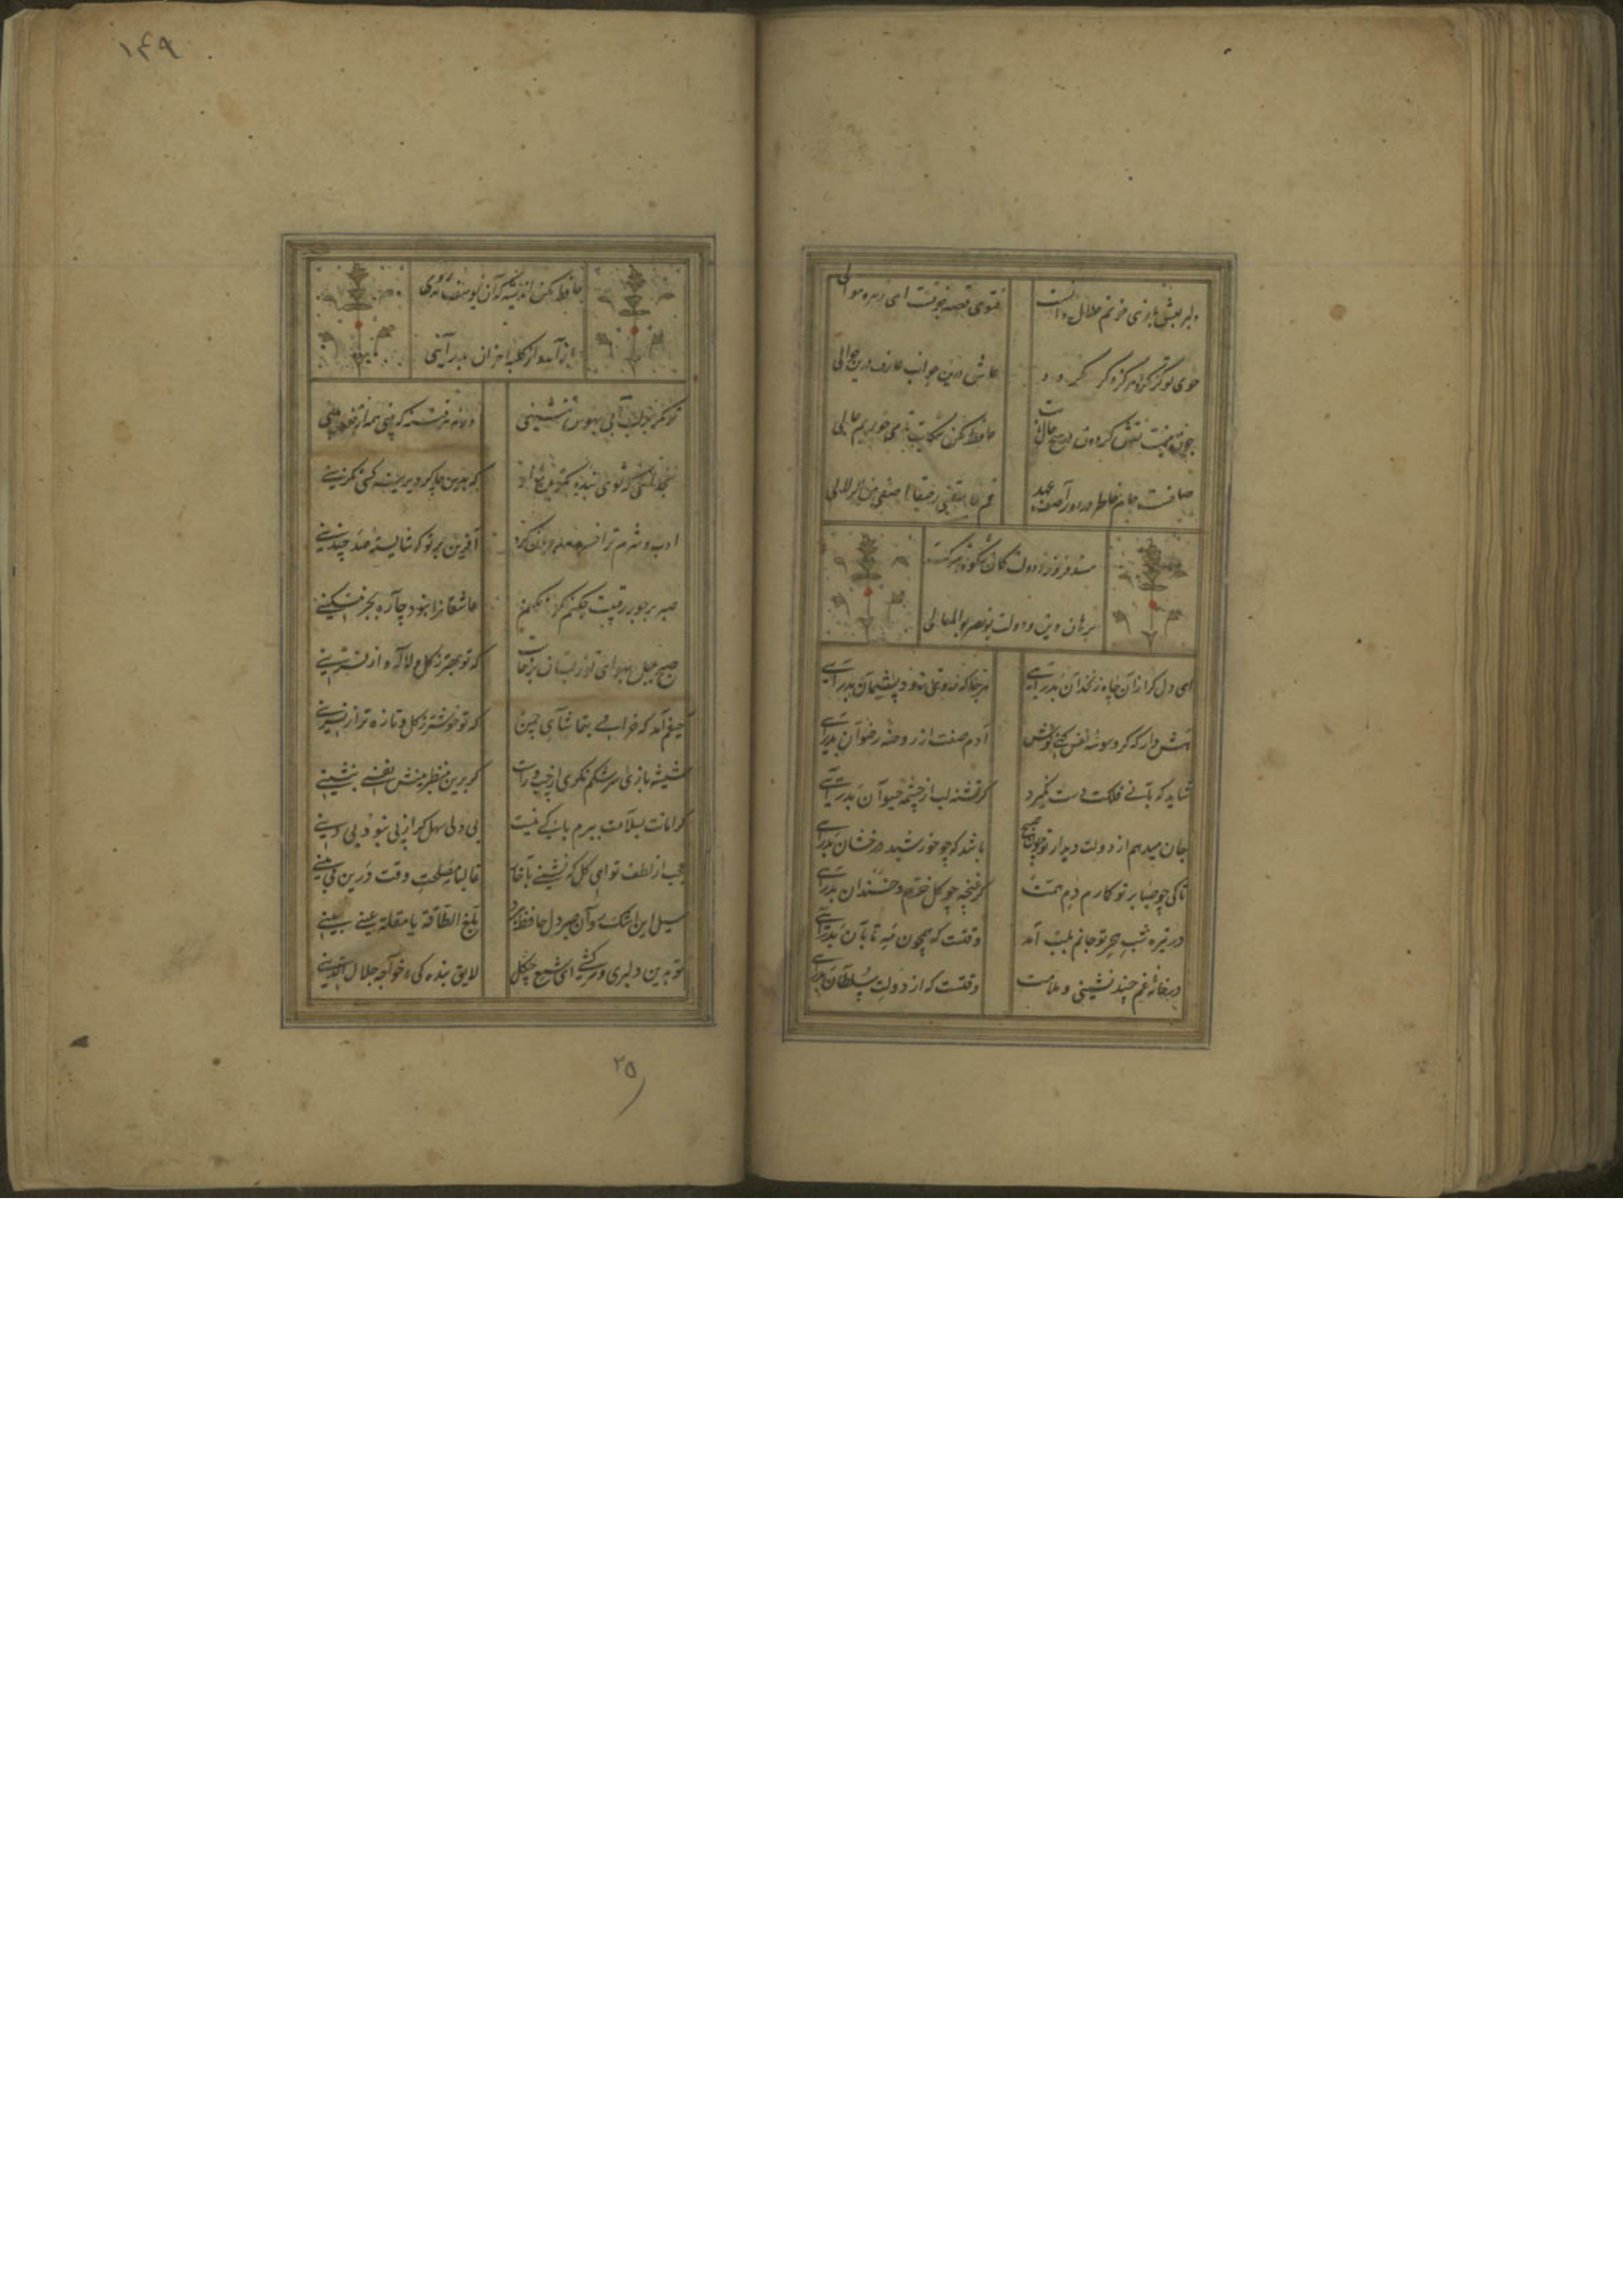 دلبر بعشق بازی خونم حلال دانست
فتوی قصه چونست ای زمره موالی
خوی تو گر نگردد هرگز دگر نگردد
عاشق درین جوانب عارف درین حوالی
چون نیست نقش گردون در هیچ حال ثابت
حافظ مکن شکایت تا می خوریم حالی
صافیست جام خاطر در دور آصف عهد
قم فاسقنی رحیقا اصفی من الزلالی
مسند فروز دولت کان شکوه و شوکت
برهان دین و دولت بونصر بوالمعالی
ای دل گر ازان چاه زنخدان بدرآیی
هرجا که روی زود پشیمان بدرآیی
هش دار که گر وسوسه نفس کنی گوش
آدم صفت از روضه رضوان بدرآیی
شاید که بآبی فلکت دست نگیرد
گر تشنه لب از چشمه حیوان بدرآیی
جان میدهم از دولت دیدار تو چون صبح
باشد که چو خورشید درخشان بدرآیی
تا کی چو صبا بر تو گمارم دم همت
کز غنچه چو گل خرم و خندان بدرآیی
در تیره شب هجر تو جانم بلب آمد
وقتست که همچون مه تابان بدرآیی
در خانه غم چند نشینی و ملامت
وقتست که از دولت سلطان بدرآیی
۱۴۹
حافظ مکن اندیشه که آن یوسف مه روی
باز آید و از کلبه احزان بدرآیی
تو مگر بر لب آبی بهوس ننشینی
ورنه هر فتنه که بینی همه از خود بینی
بخدائی که توئی بنده بگزیده او
که برین چاکر دیرینه کسی نگزینی
ادب و شرم ترا خسرو مه رویان کرد
آفرین بر تو که شایسته صد چندینی
صبر بر جور رقیبت چکنم گر نکنم
عاشقانرا نبود چاره بجز مسکینی
که تو بهتر ز گل و لاله و از نسرینی
حیفم آمد که خرامی بتماشای چمن
که تو خوشتر ز گل و تازه تر از نسرینی
شیشه بازی سرشکم نگری از چپ و راست
گر برین منظر بینش نفسی بنشینی
گر امانت بسلامت ببرم باکی نیست
بی دلی سهل گر از پی نبود بی دینی
عجب از لطف تو ای گل که نشینی با خار
غالبا مصلحت وقت درین می بینی
سیل این اشک روان صبر دل حافظ برد
بلغ الطاقة یا مقلة عینی بینی
تو بدین دلبری و سرکشی ای شمع چگل
لایق بندگی خواجه جلال الدینی
۲۵